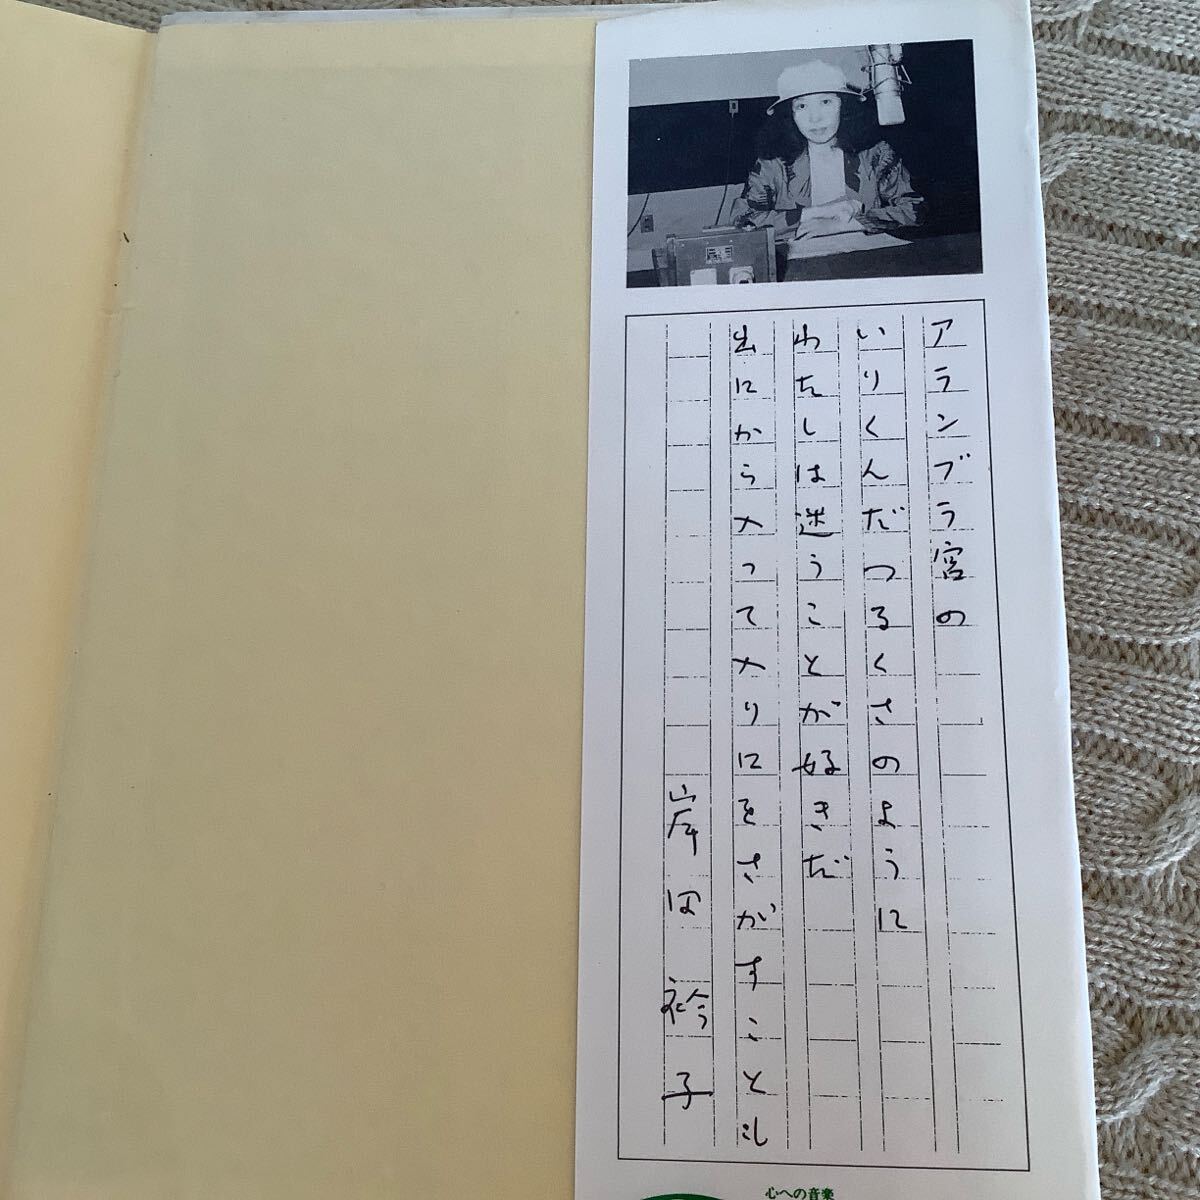 アランブラ宮の
いりくんだつるくさのように
わたしは迷うことが好きだ
出口から入って入り口をさがすことも
岸田 衿子
心への音楽